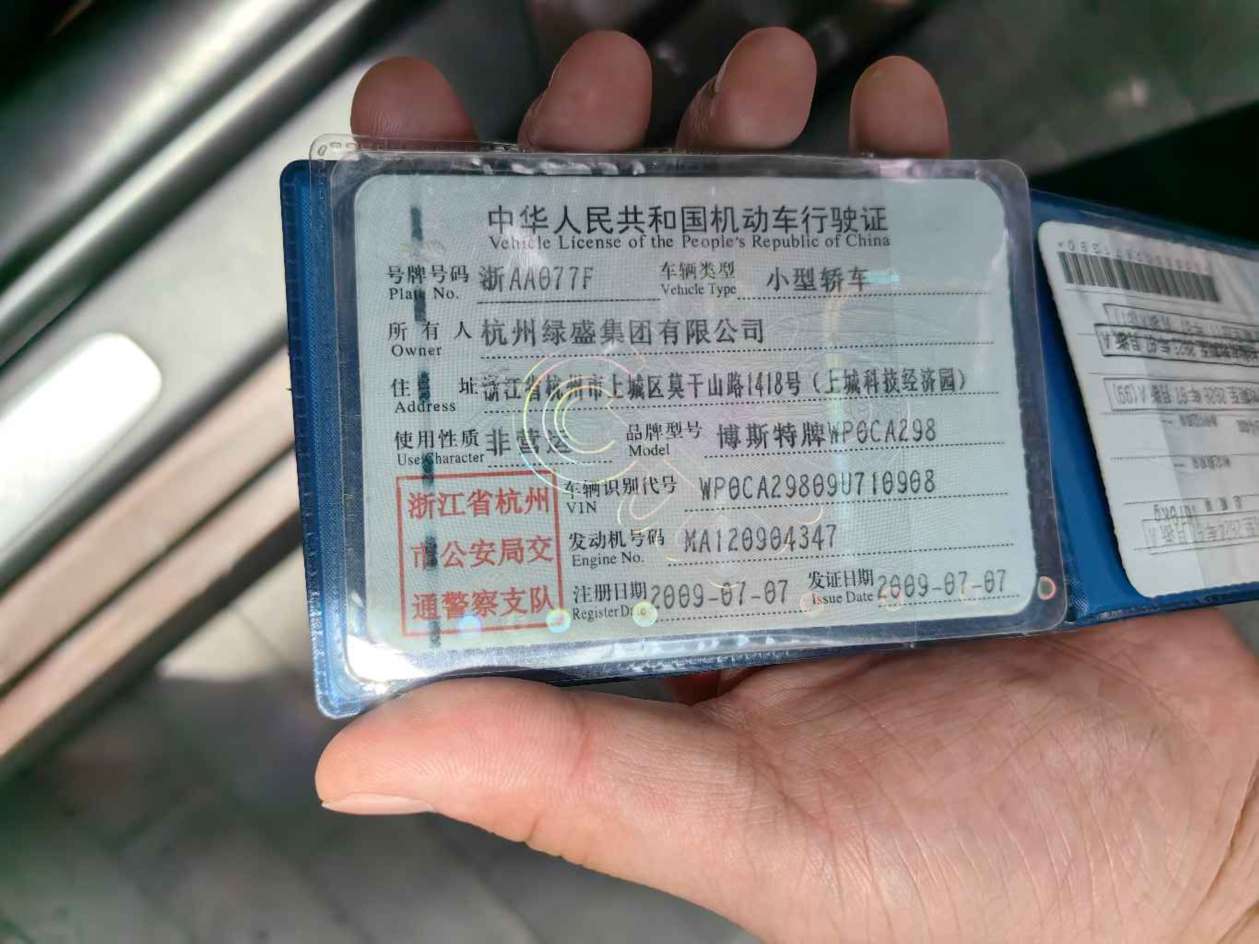 中华人民共和国机动车行驶证
Vehicle License of the People's Republic of China
号牌号码 浙AA077F 车辆类型 小型轿车
Plate No. Vehicle Type
所有人 杭州绿盛集团有限公司
Owner
住址 浙江省杭州市上城区莫干山路1418号(上城科技经济园)
Address
使用性质 非营运 品牌型号 博斯特牌WP0CA298
Use Character Model
浙江省杭州
市公安局交
通警察支队
车辆识别代号 WP0CA29809U710908
VIN
发动机号码 MA120904347
Engine No.
注册日期 2009-07-07 发证日期 2009-07-07
Register Date Issue Date